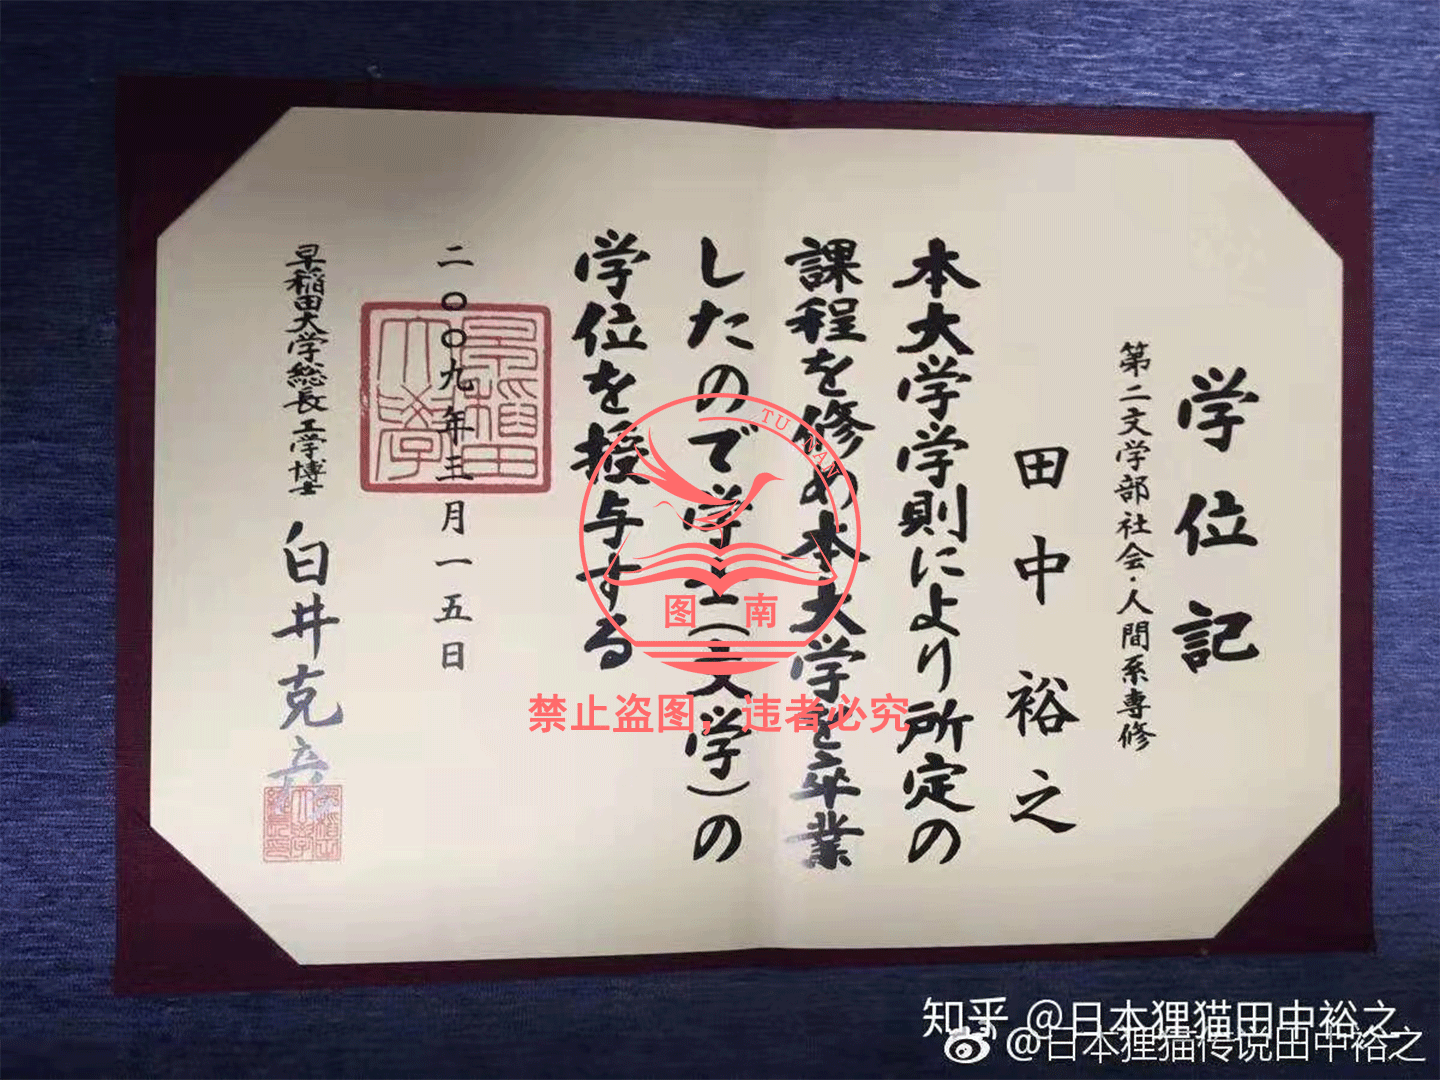 学位記
第二文学部社会・人間系専修
田中裕之
本大学学則により所定の
課程を修め本大学を卒業
したので学士(文学)の
学位を授与する
二〇〇九年三月一五日
早稲田大学
早稲田大学総長 工学博士 白井克彦
TU NAN
图南
禁止盗图,违者必究
知乎 @日本狸猫田中裕之
@日本狸猫传说田中裕之